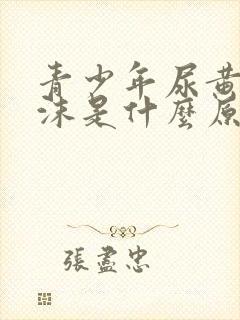 青少年尿黄
沫是什麼原
張盡忠